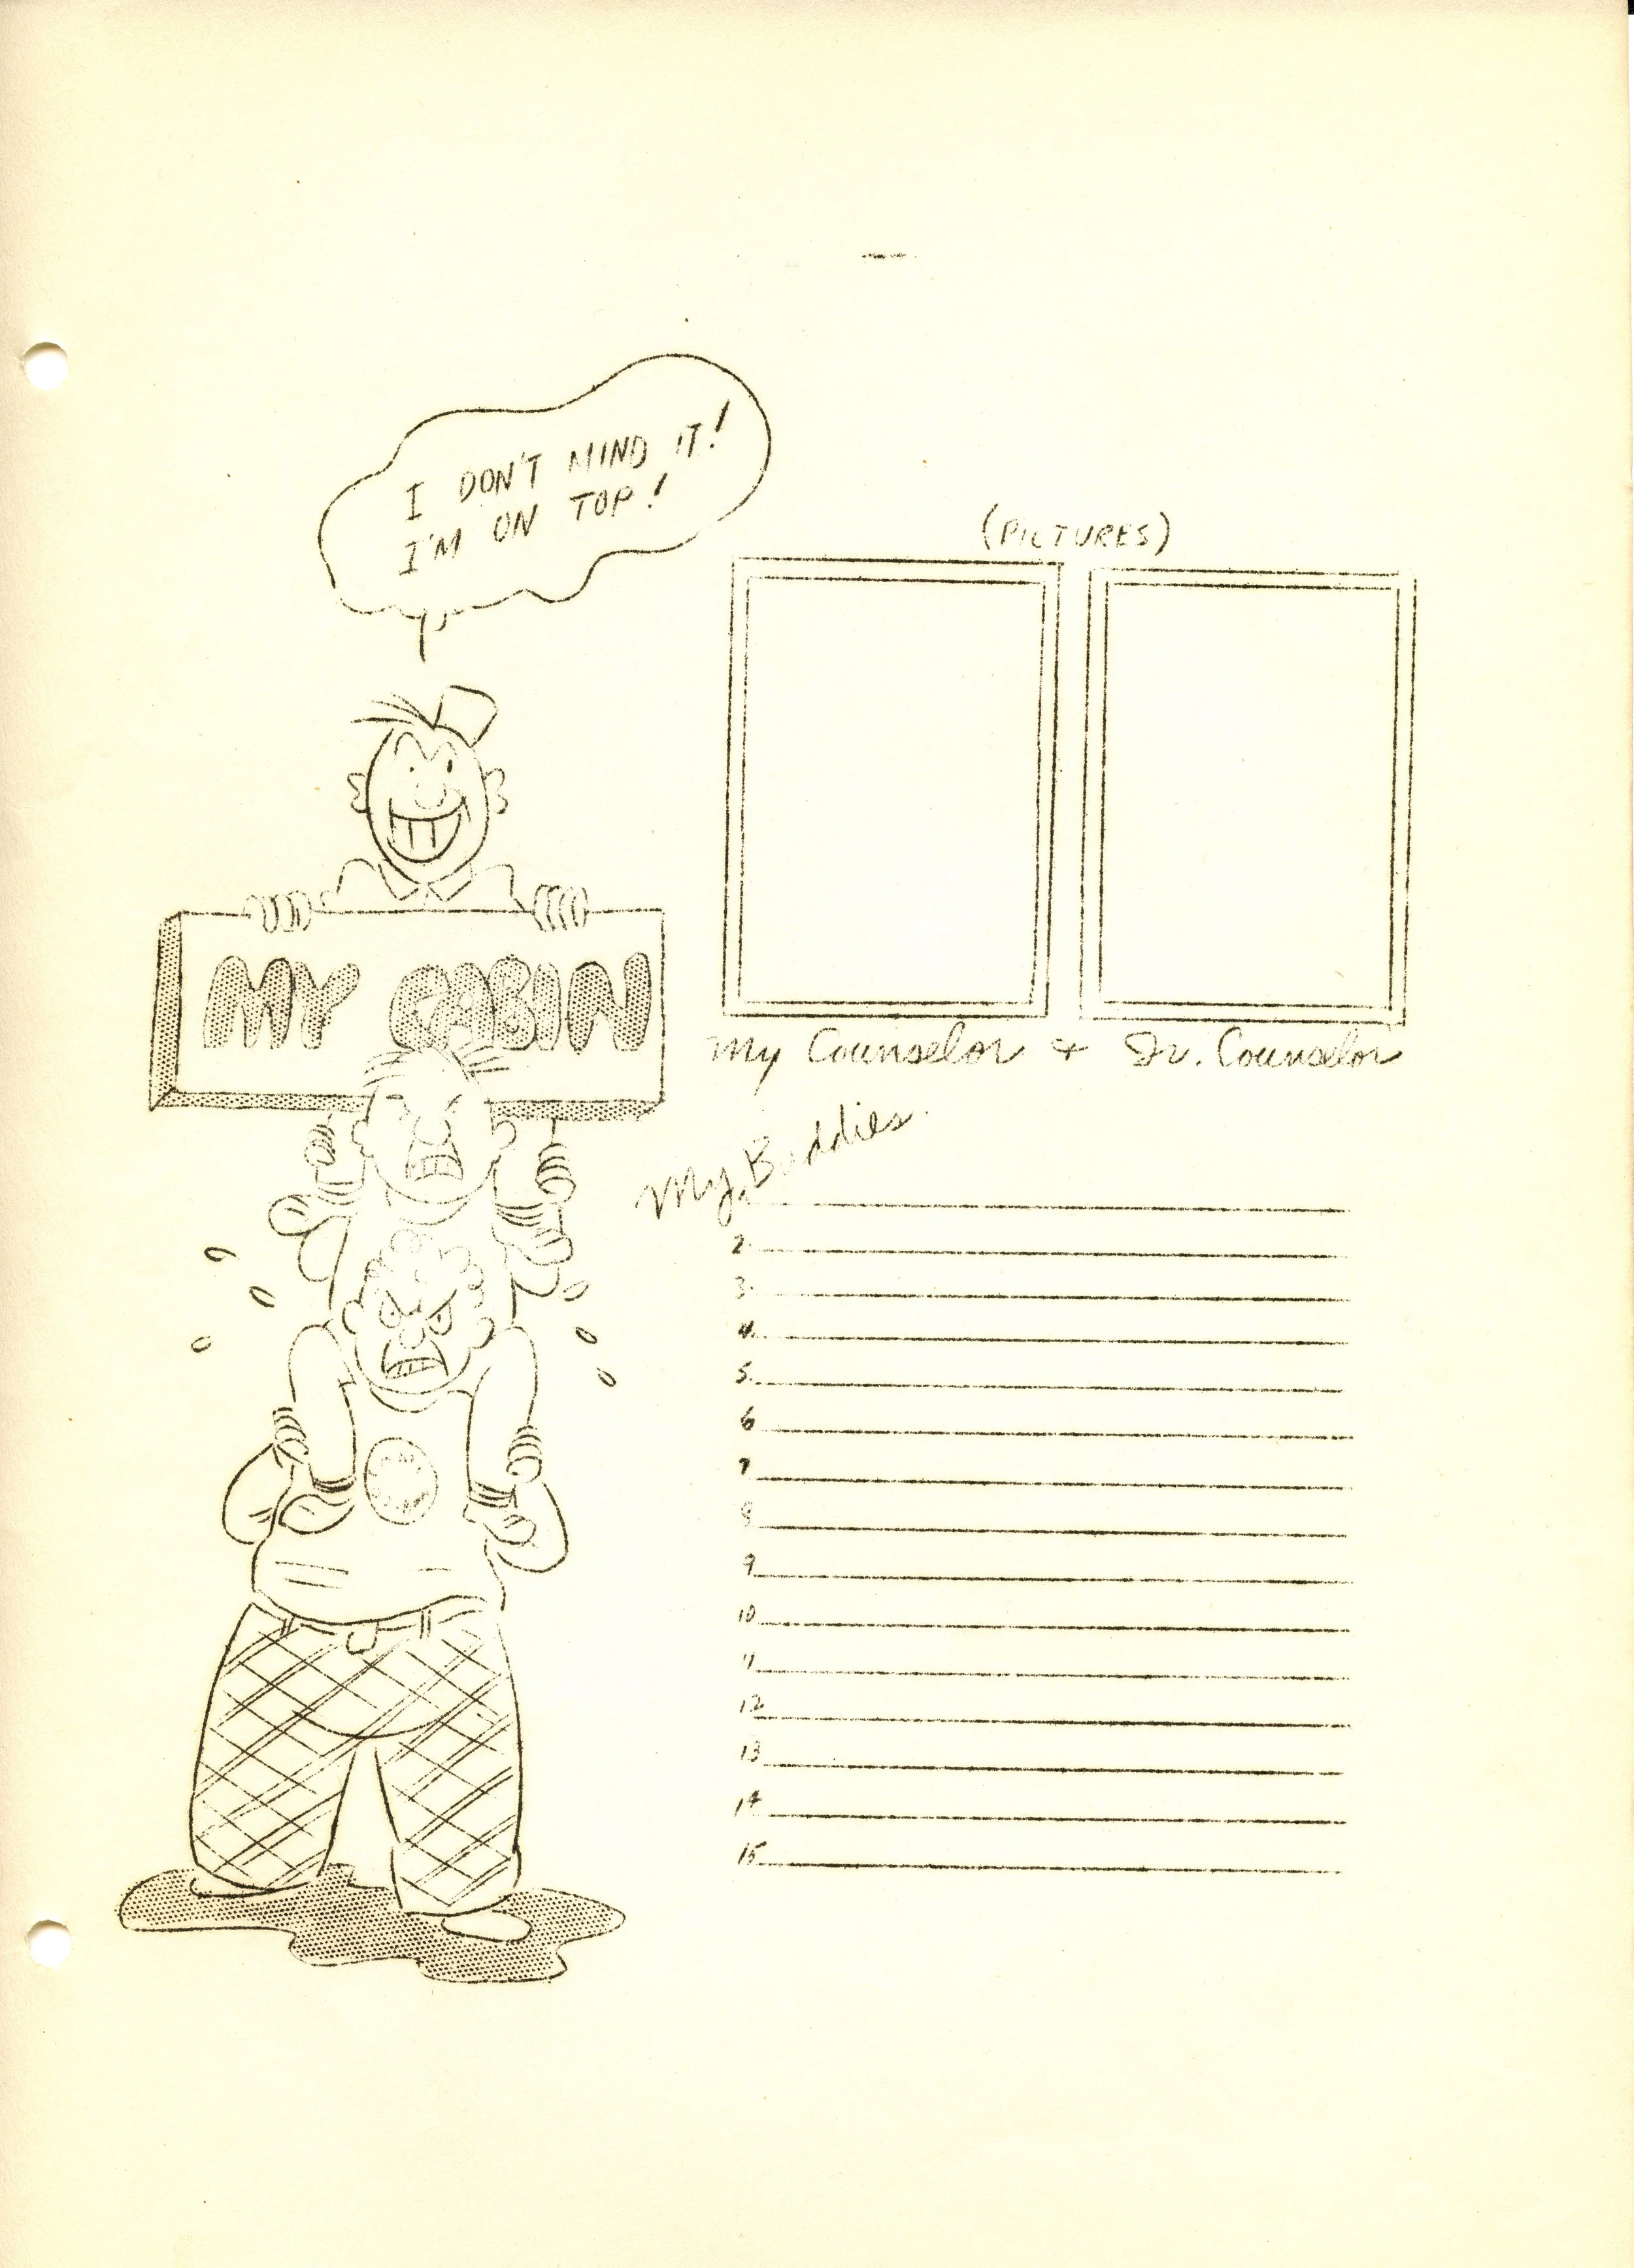 I DON'T MIND IT!
I'M ON TOP!
(PICTURES)
MY CABIN
My Counselor + Jr. Counselor
My Buddies.
2.
3.
4.
5.
6
7
8
9
10
11
12
13
14
15